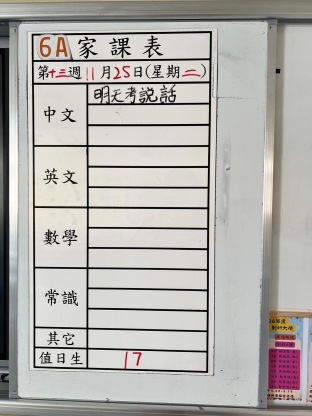 6A 家課表
第十三週 11月25日(星期二)
中文 明天考說話
英文
數學
常識
其它
值日生 17